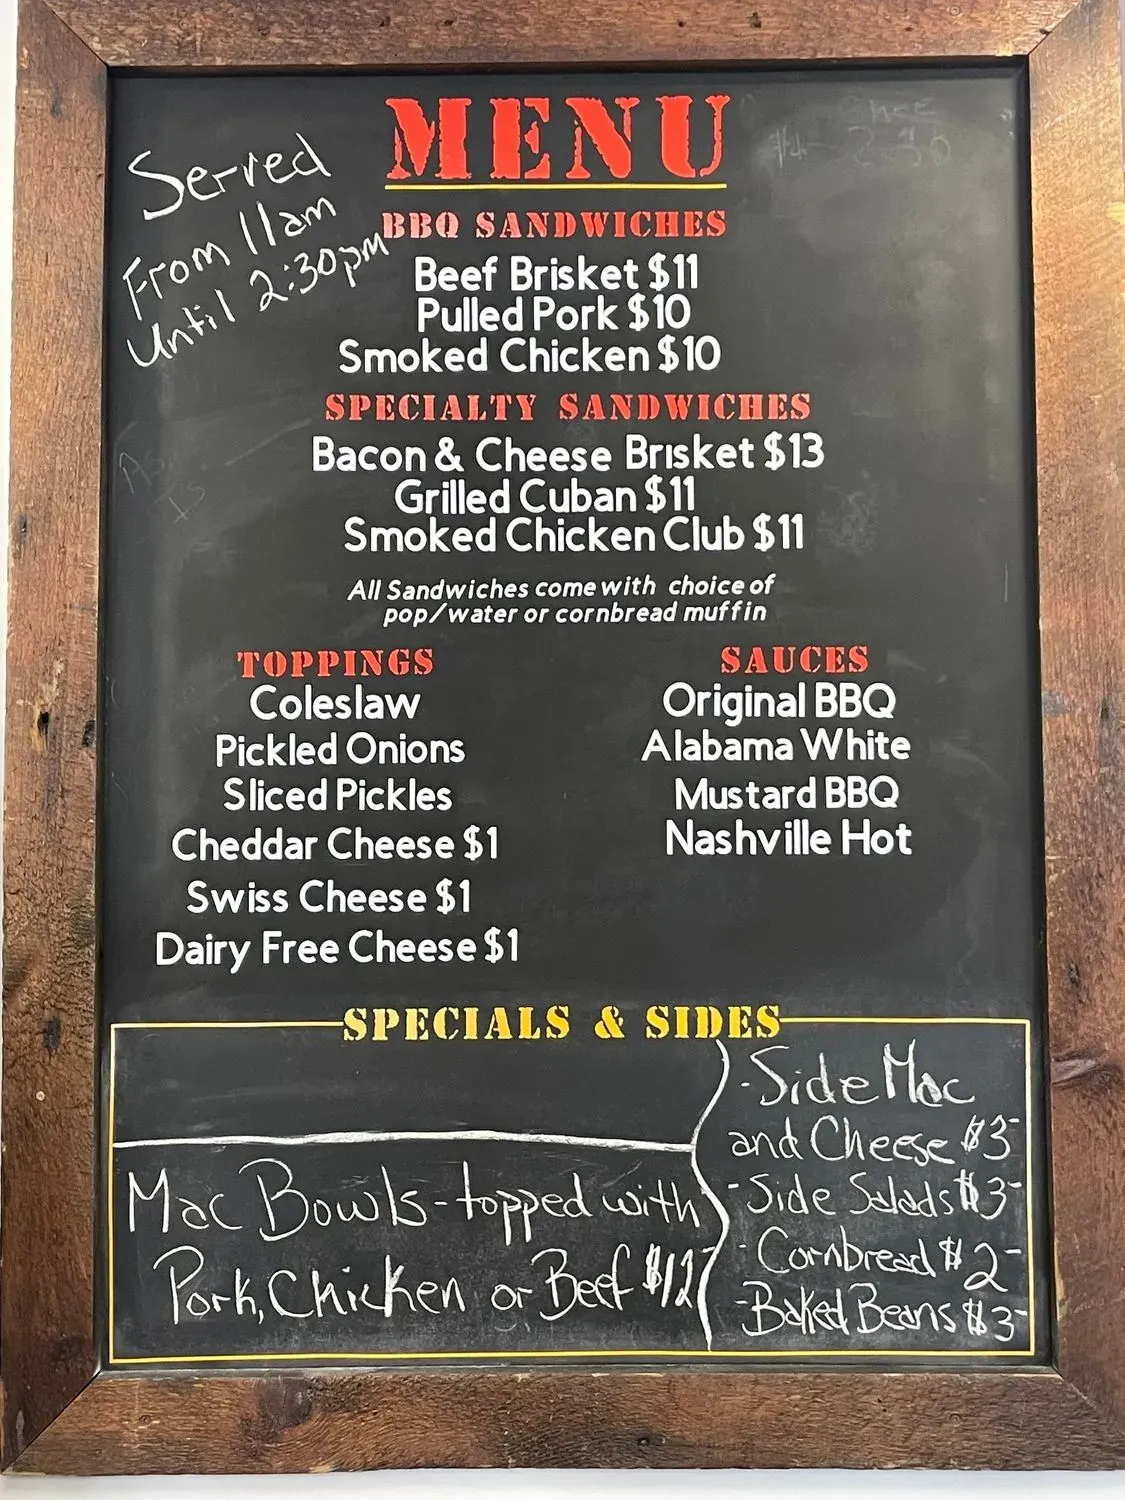 MENU
Served
From 11am
Until 2:30pm
BBQ SANDWICHES
Beef Brisket $11
Pulled Pork $10
Smoked Chicken $10
SPECIALTY SANDWICHES
Bacon & Cheese Brisket $13
Grilled Cuban $11
Smoked Chicken Club $11
All Sandwiches come with choice of
pop/water or cornbread muffin
TOPPINGS
Coleslaw
Pickled Onions
Sliced Pickles
Cheddar Cheese $1
Swiss Cheese $1
Dairy Free Cheese $1
SAUCES
Original BBQ
Alabama White
Mustard BBQ
Nashville Hot
SPECIALS & SIDES
Mac Bowls - topped with
Pork, Chicken or Beef $12-
- Side Mac
and Cheese $3-
- Side Salads $3-
- Cornbread $2-
- Baked Beans $3-